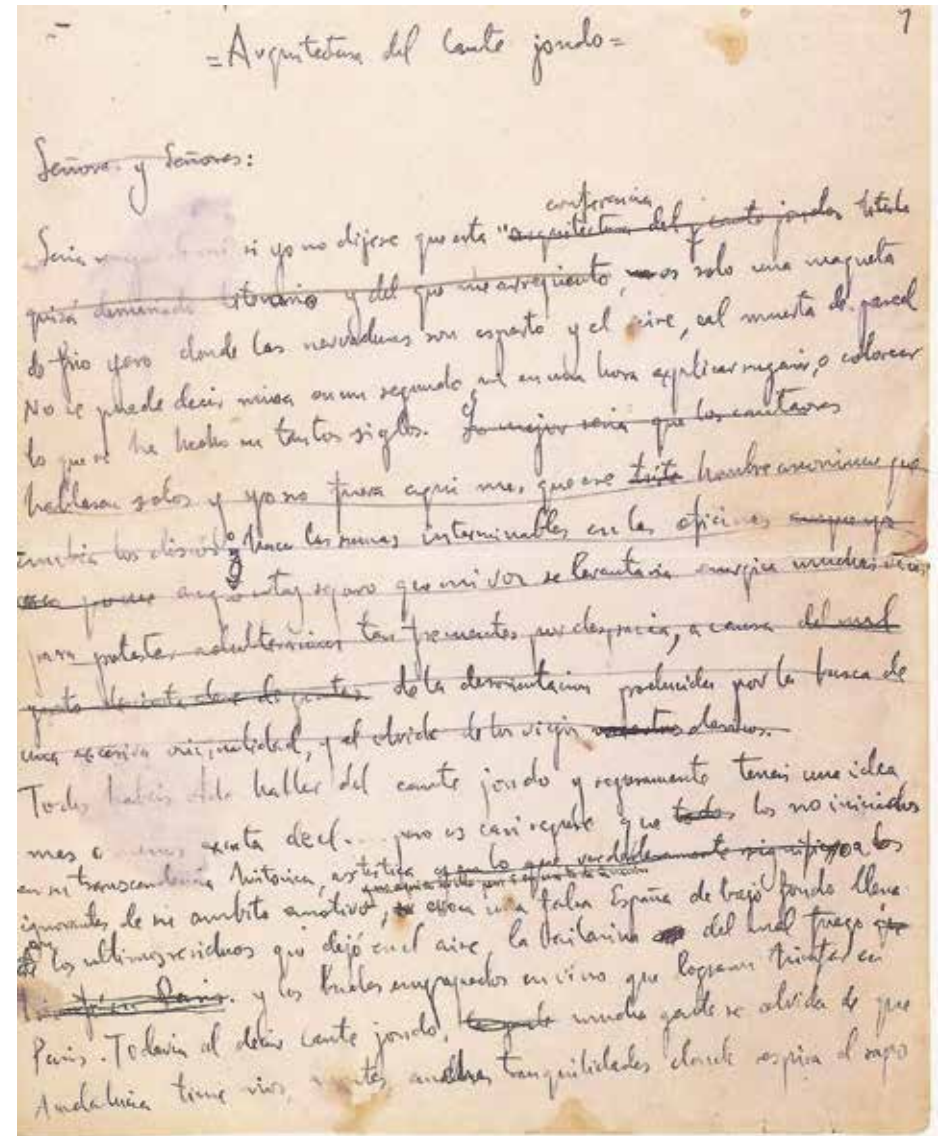 1
=Arquitectura del Cante jondo=
Señoras y Señores:
conferencia
Seria si yo no dijese que esta "arquitectura del cante jondo
quizá demasiado literario y del que me arrepiento, es solo una maqueta
de frio yeso donde las nervaduras son esparto y el aire, cal muerta de pared
No se puede decir misa en un segundo ni en una hora explicar o colorear
lo que se ha hecho en tantos siglos. Lo mejor seria que los cantaores
hablasen solos y yo no fuera aqui mas que ese triste hombre anonimo que
cambia los discos o hace las sumas interminables en las oficinas
seguro que mi voz se levantaria energica muchas veces
para protestar adulteraciones tan frecuentes por desgracia, a causa del mal
gusto de la desorientacion producida por la busca de
una excesiva originalidad, y el olvido de los viejos maestros clasicos.
Todos habeis oido hablar del cante jondo y seguramente teneis una idea
mas o menos exacta de el.... pero es casi seguro que todos los no iniciados
en su transcendencia historica, artistica o en lo que verdaderamente significa o los
ignorantes de su ambito emotivo, una falsa España de bajo fondo llena
los ultimos residuos que dejó en el aire, la bailarina del mal fuego que
triunfó en Paris. y los bucles empapados en vino que lograron triunfar en
Paris. Todavia al decir cante jondo, la gente mucha gente se olvida de que
Andalucia tiene rios, montes, anchas tranquilidades donde el sapo